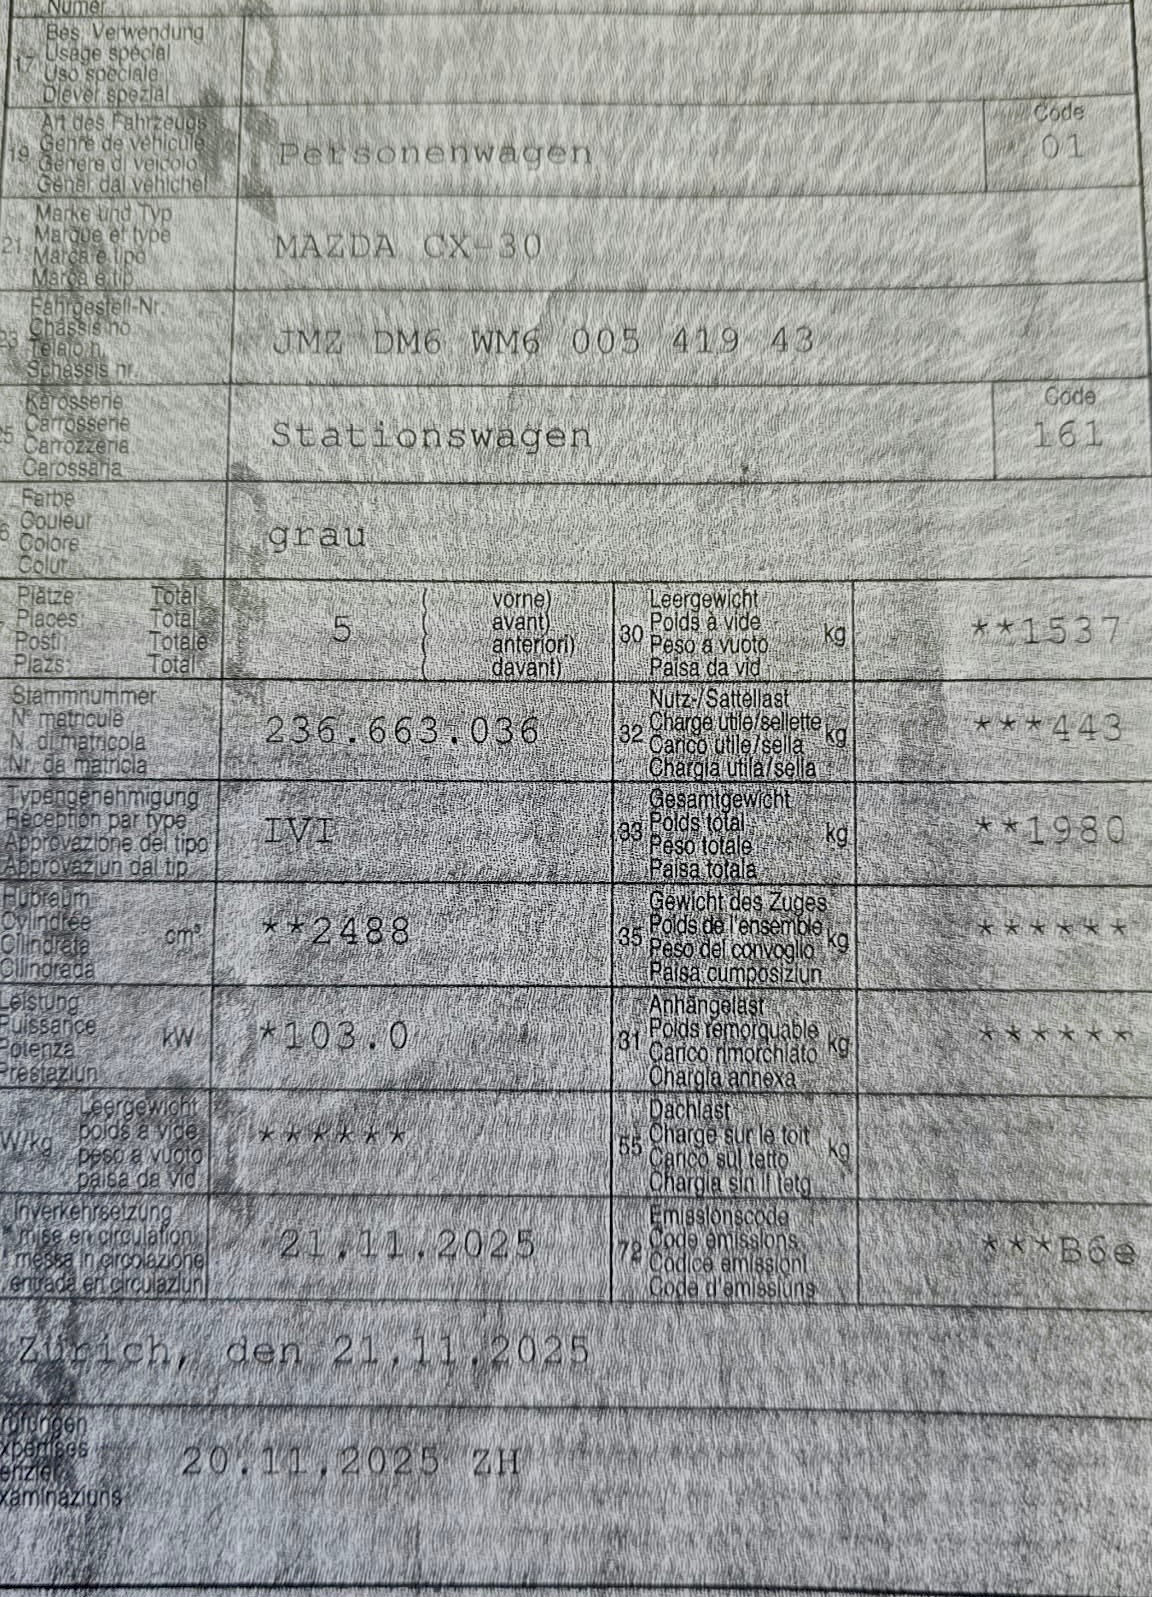 Numer
17 Bes. Verwendung
Usage spécial
Uso speciale
Diever spezial
19 Art des Fahrzeugs
Genre de véhicule
Genere di veicolo
Gener dal vehichel
Personenwagen
Code
01
21 Marke und Typ
Marque et type
Marca e tipo
Marca e tip
MAZDA CX-30
23 Fahrgestell-Nr.
Châssis no
Telaio n.
Schassis nr.
JMZ DM6 WM6 005 419 43
25 Karosserie
Carrosserie
Carrozzeria
Carossaria
Stationswagen
Code
161
6 Farbe
Couleur
Colore
Colur
grau
Plätze: Total
Places: Total
Posti: Totale
Plazs: Total
5
( vorne)
( avant)
( anteriori)
( davant)
30 Leergewicht
Poids à vide
Peso a vuoto
Paisa da vid
kg
**1537
Stammnummer
N° matricule
N. di matricola
Nr. da matricla
236.663.036
32 Nutz-/Sattellast
Charge utile/sellette
Carico utile/sella
Chargia utila/sella
kg
***443
Typengenehmigung
Réception par type
Approvazione del tipo
Approvaziun dal tip
IVI
33 Gesamtgewicht
Poids total
Peso totale
Paisa totala
kg
**1980
Hubraum
Cylindrée
Cilindrata
Cilindrada
cm³
**2488
35 Gewicht des Zuges
Poids de l'ensemble
Peso del convoglio
Paisa cumposiziun
kg
******
Leistung
Puissance
Potenza
Prestaziun
kW
*103.0
31 Anhängelast
Poids remorquable
Carico rimorchiato
Chargia annexa
kg
******
W/kg
Leergewicht
poids à vide
peso a vuoto
paisa da vid
******
55 Dachlast
Charge sur le toit
Carico sul tetto
Chargia sin il tetg
kg
Inverkehrsetzung
mise en circulation
messa in circolazione
entrada en circulaziun
21.11.2025
72 Emissionscode
Code émissions
Codice emissioni
Code d'emissiuns
***B6e
Zürich, den 21.11.2025
rüfungen
xpertises
xaminaziuns
20.11.2025 ZH